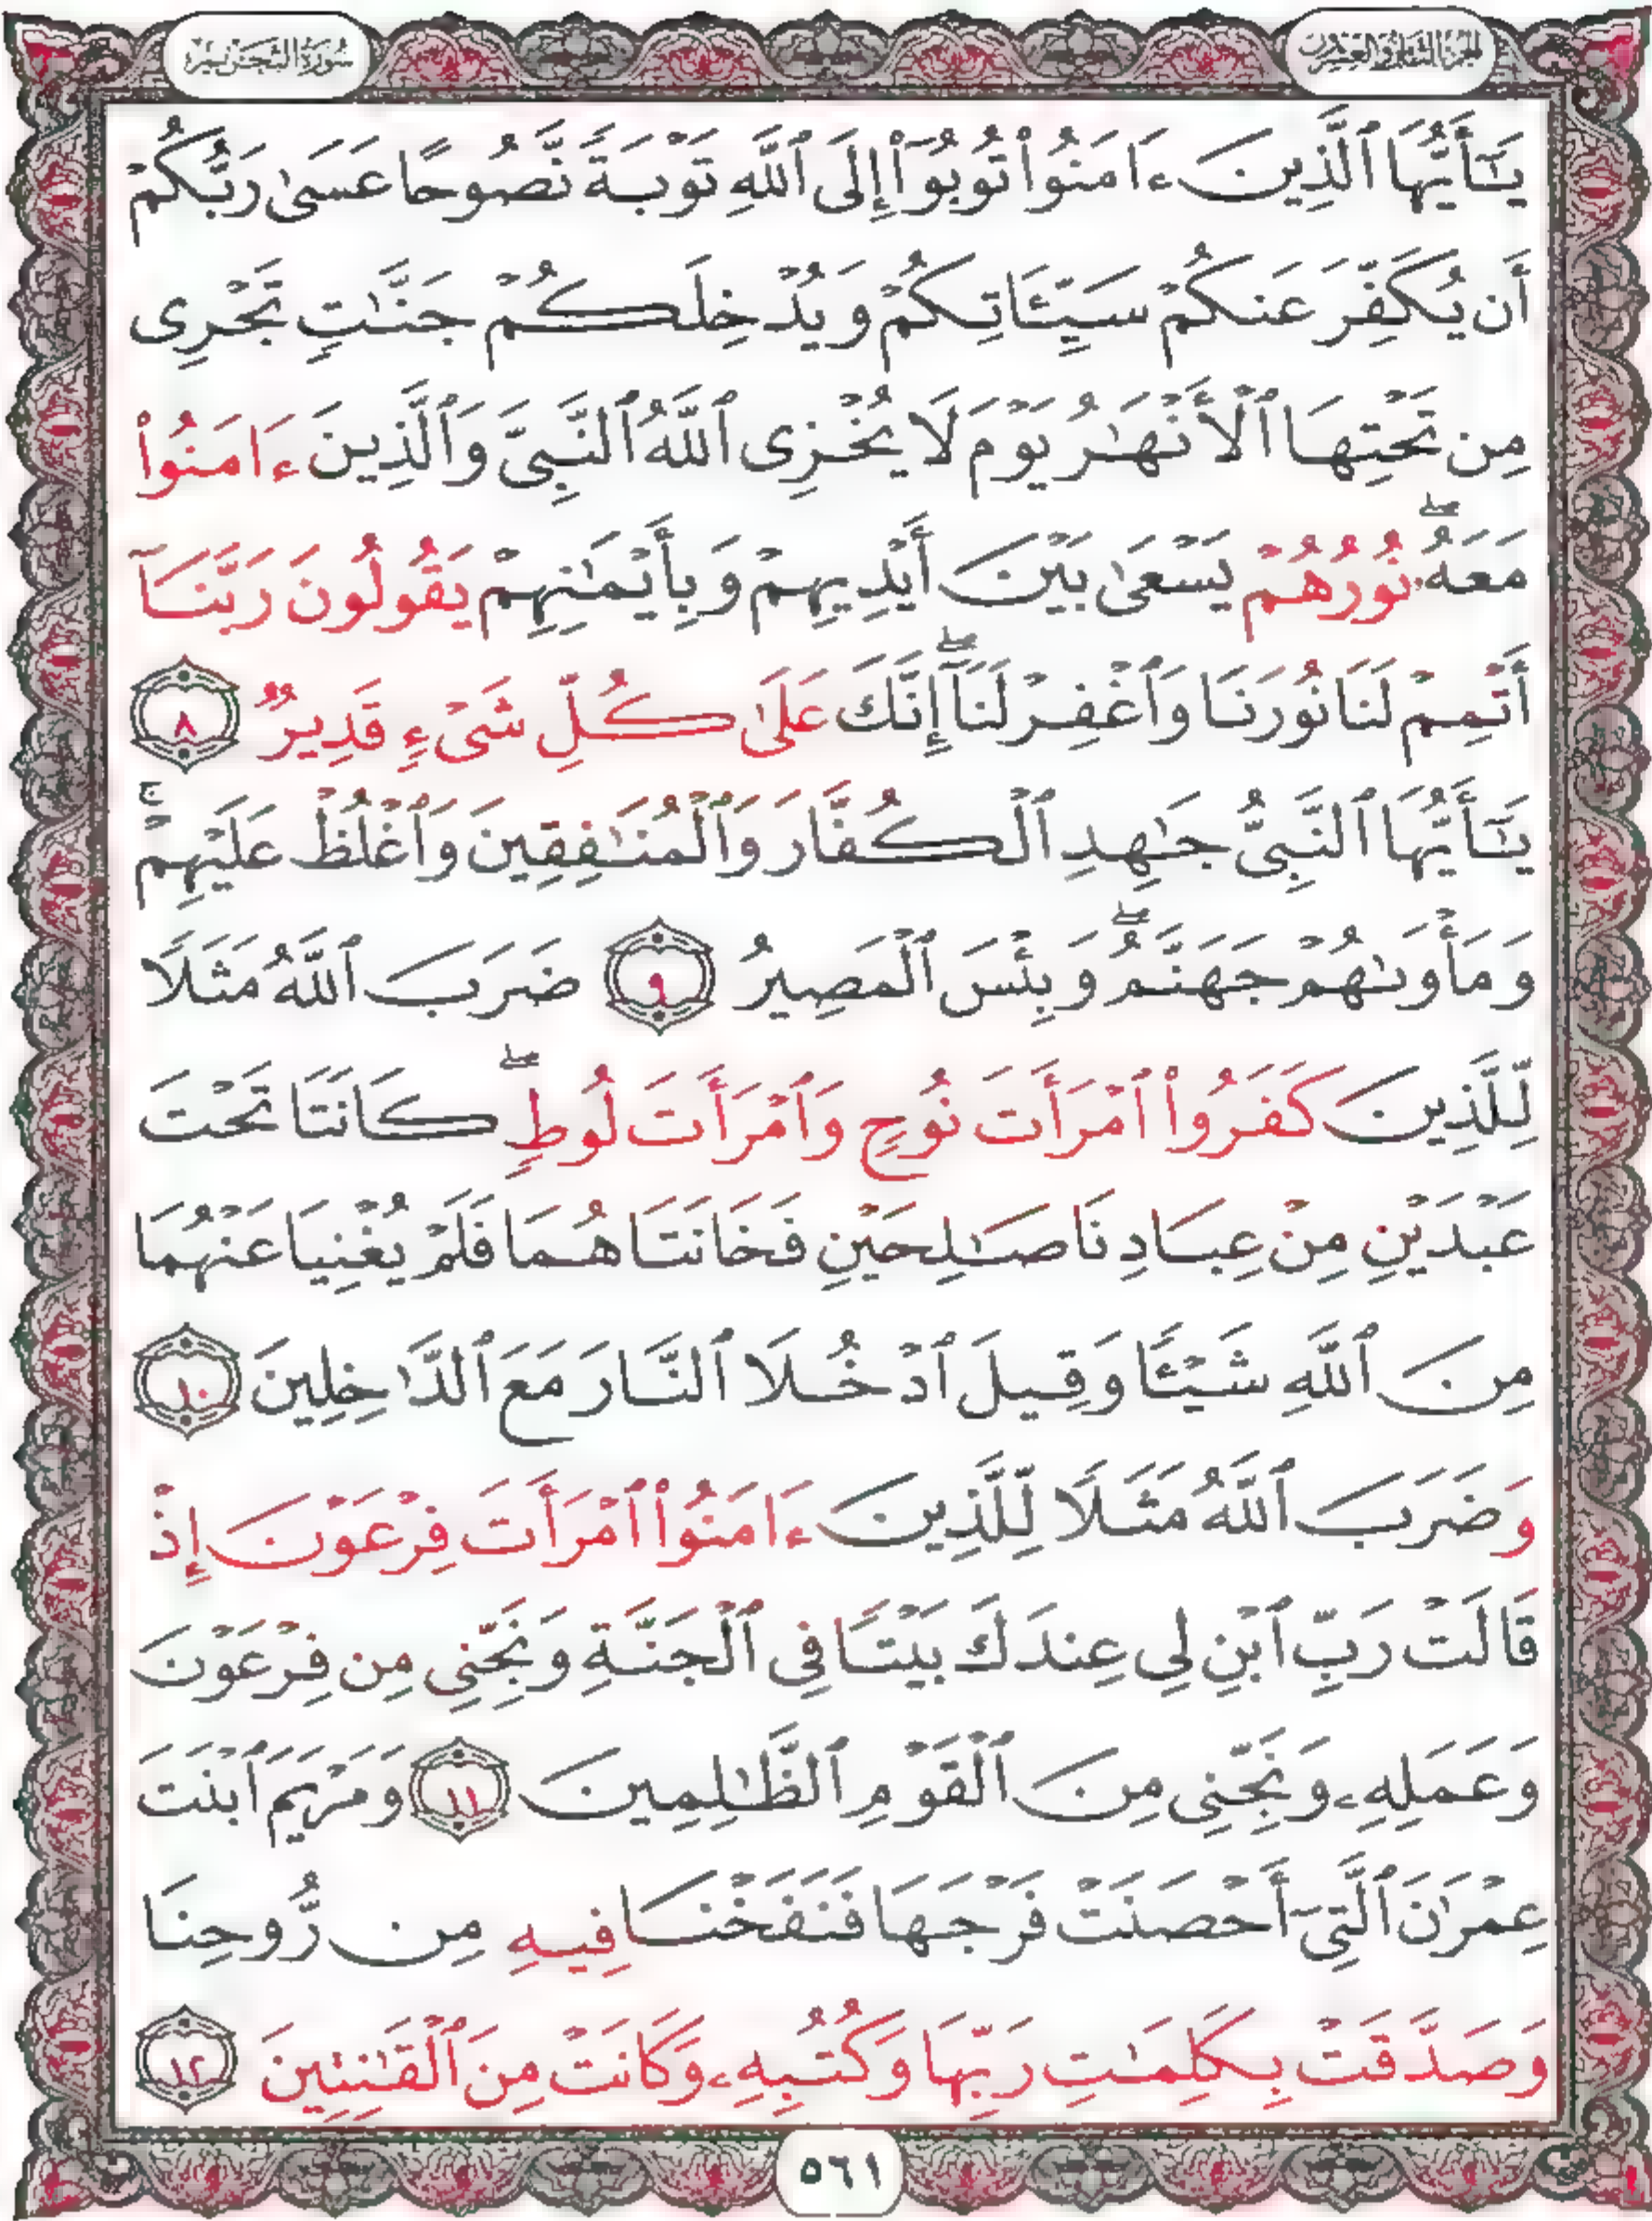 الجزء الثامن والعشرون
سُورَةُ التَّحْرِيمِ
يَٰٓأَيُّهَا ٱلَّذِينَ ءَامَنُوا۟ تُوبُوٓا۟ إِلَى ٱللَّهِ تَوْبَةً نَّصُوحًا عَسَىٰ رَبُّكُمْ
أَن يُكَفِّرَ عَنكُمْ سَيِّـَٔاتِكُمْ وَيُدْخِلَكُمْ جَنَّٰتٍ تَجْرِى
مِن تَحْتِهَا ٱلْأَنْهَٰرُ يَوْمَ لَا يُخْزِى ٱللَّهُ ٱلنَّبِىَّ وَٱلَّذِينَ ءَامَنُوا۟
مَعَهُۥ ۖ نُورُهُمْ يَسْعَىٰ بَيْنَ أَيْدِيهِمْ وَبِأَيْمَٰنِهِمْ يَقُولُونَ رَبَّنَآ
أَتْمِمْ لَنَا نُورَنَا وَٱغْفِرْ لَنَآ ۖ إِنَّكَ عَلَىٰ كُلِّ شَىْءٍ قَدِيرٌ ٨
يَٰٓأَيُّهَا ٱلنَّبِىُّ جَٰهِدِ ٱلْكُفَّارَ وَٱلْمُنَٰفِقِينَ وَٱغْلُظْ عَلَيْهِمْ ۚ
وَمَأْوَىٰهُمْ جَهَنَّمُ ۖ وَبِئْسَ ٱلْمَصِيرُ ٩ ضَرَبَ ٱللَّهُ مَثَلًا
لِّلَّذِينَ كَفَرُوا۟ ٱمْرَأَتَ نُوحٍ وَٱمْرَأَتَ لُوطٍ ۖ كَانَتَا تَحْتَ
عَبْدَيْنِ مِنْ عِبَادِنَا صَٰلِحَيْنِ فَخَانَتَاهُمَا فَلَمْ يُغْنِيَا عَنْهُمَا
مِنَ ٱللَّهِ شَيْـًٔا وَقِيلَ ٱدْخُلَا ٱلنَّارَ مَعَ ٱلدَّٰخِلِينَ ١٠
وَضَرَبَ ٱللَّهُ مَثَلًا لِّلَّذِينَ ءَامَنُوا۟ ٱمْرَأَتَ فِرْعَوْنَ إِذْ
قَالَتْ رَبِّ ٱبْنِ لِى عِندَكَ بَيْتًا فِى ٱلْجَنَّةِ وَنَجِّنِى مِن فِرْعَوْنَ
وَعَمَلِهِۦ وَنَجِّنِى مِنَ ٱلْقَوْمِ ٱلظَّٰلِمِينَ ١١ وَمَرْيَمَ ٱبْنَتَ
عِمْرَٰنَ ٱلَّتِىٓ أَحْصَنَتْ فَرْجَهَا فَنَفَخْنَا فِيهِ مِن رُّوحِنَا
وَصَدَّقَتْ بِكَلِمَٰتِ رَبِّهَا وَكُتُبِهِۦ وَكَانَتْ مِنَ ٱلْقَٰنِتِينَ ١٢
٥٦١